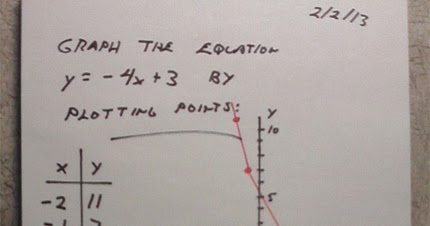 2/2/13
GRAPH THE EQUATION
y = -4x + 3 BY
PLOTTING POINTS:
x y
-2 11
-1 7
y
10
5